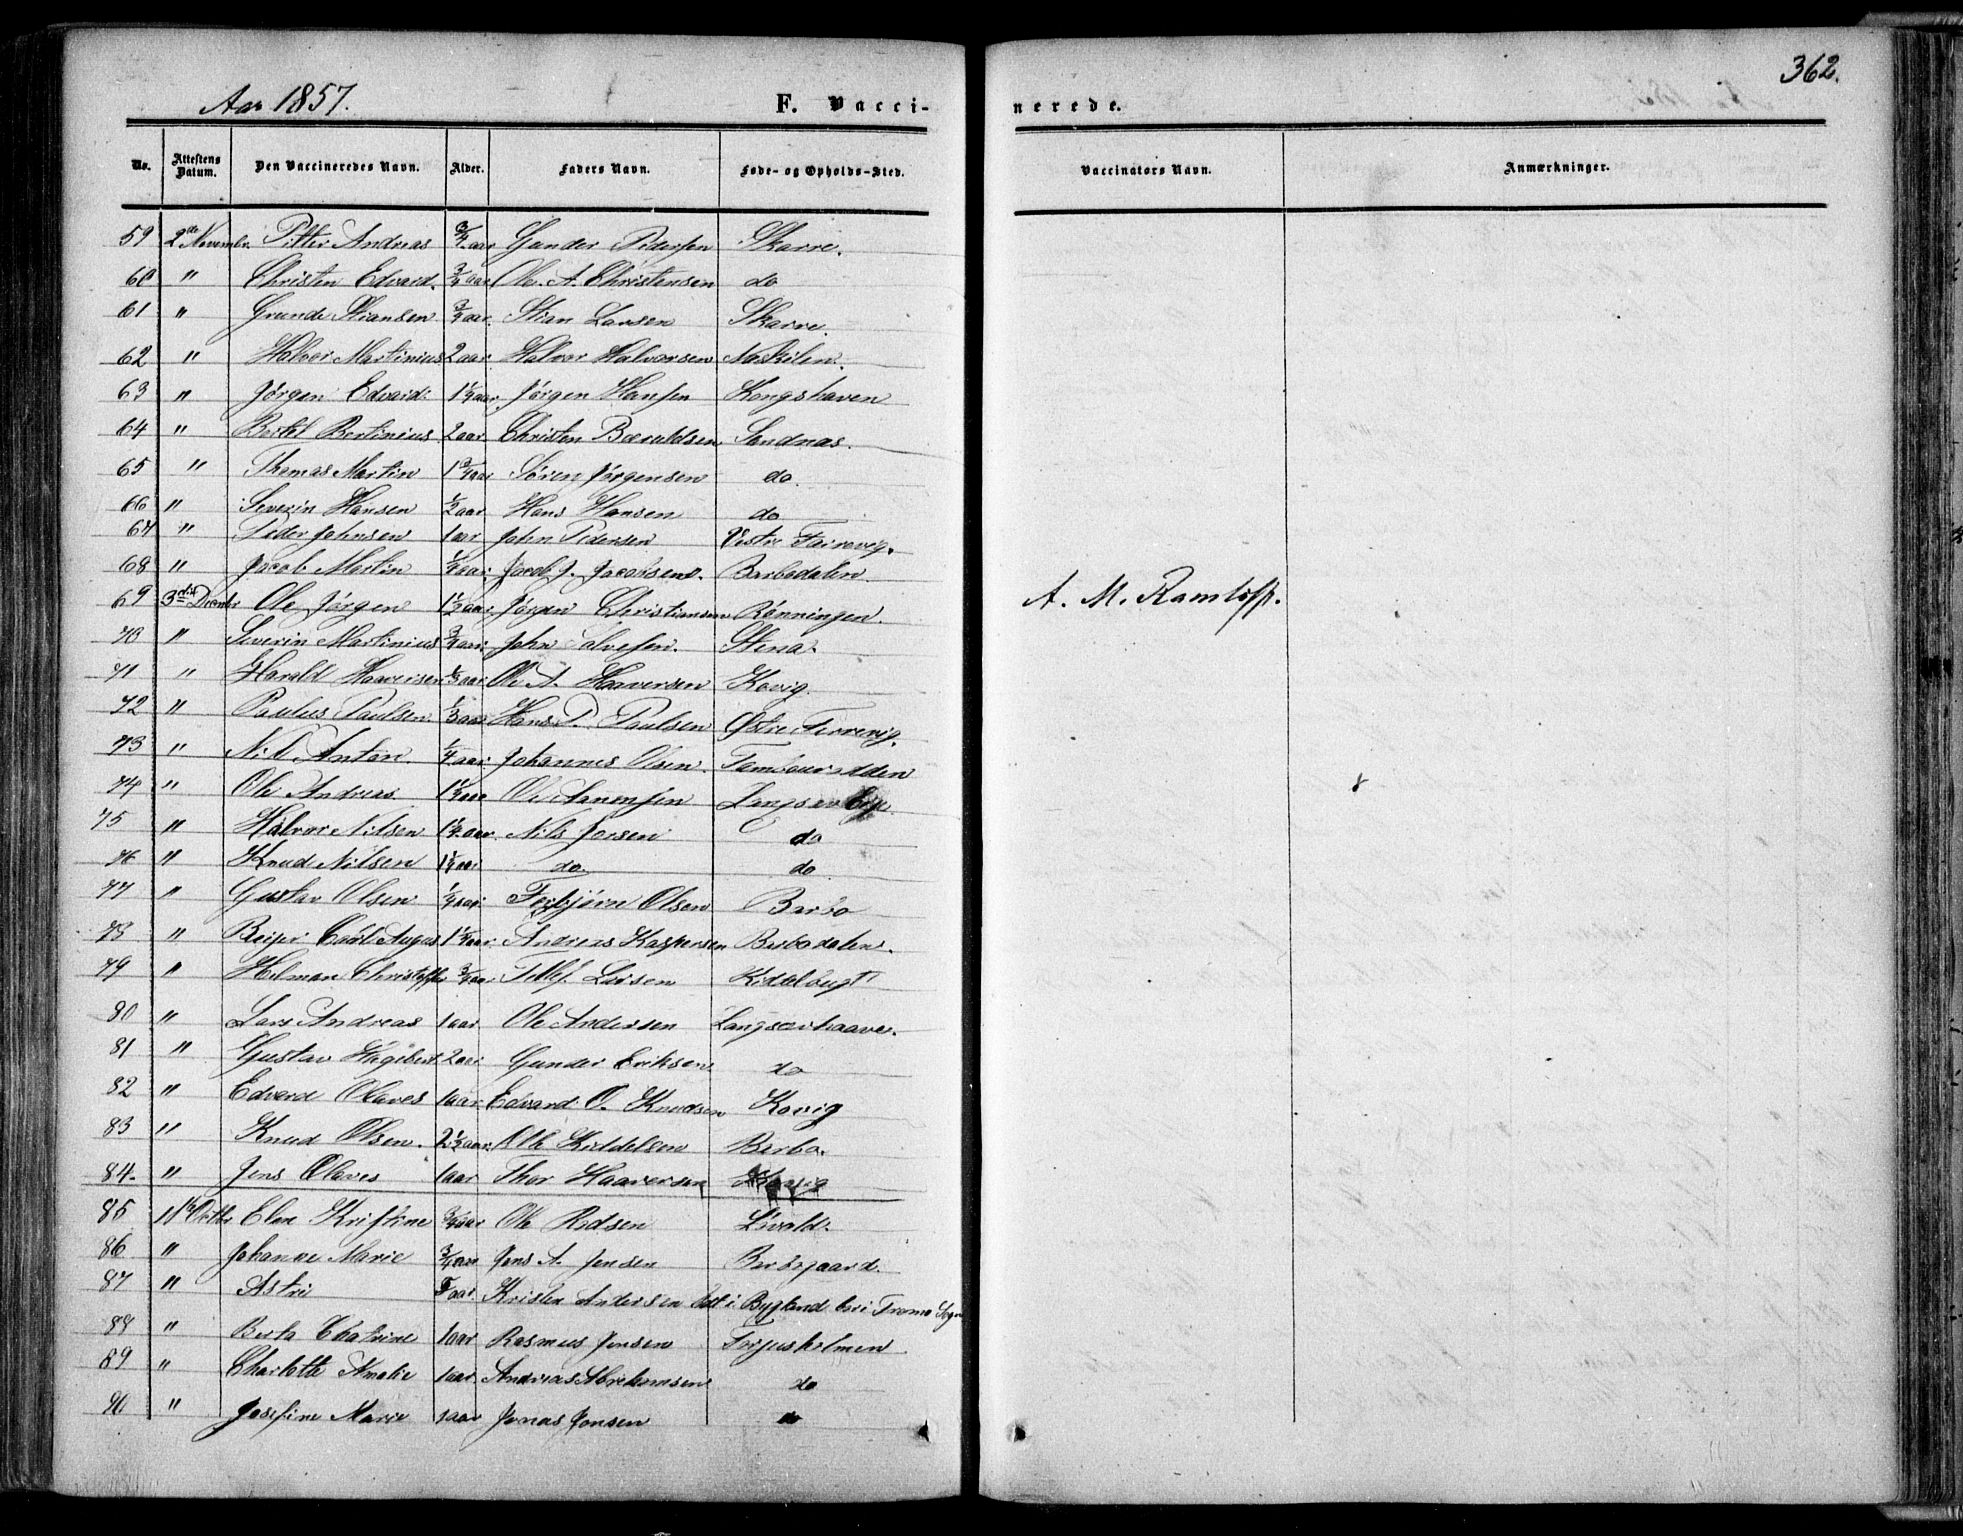 362.
Aar 1857. F. Vacci- nerede.
No. Attestens Datum. Den Vaccineredes Navn. Alder. Faders Navn. Føde- og Opholds-Sted. Vaccinators Navn. Anmærkninger.
59 2de Novembr. Pitter Andreas 3/4 aar Gunder Pedersen Skarre.
60 " Christen Edvard. 3/4 aar Ole A. Christensen do
61 " Grunde Stiansen 3/4 aar. Stian Larsen Skarre.
62 " Halvor Martinius 2 aar Halvor Halvorsen Naskilen.
63 " Jørgen Edvard. 1 1/4 aar. Jørgen Hansen Kongshaven
64 " Bertel Bertinius 2 aar. Christen Baraldsen Sandnæs.
65 " Thomas Martin 1 3/4 aar Søren Jørgensen do.
66 " Severin Hansen 1/2 aar Hans Hansen do
67 " Peder Johnsen 1 aar John Pedersen Vestre Tairevig.
68 " Jacob Martin 1/4 aar. Jacob J. Jacobsen. Barbodalen.
69 3die Decmbr Ole Jørgen 1 1/2 aar. Jørgen Christiansen Rønningen. A. M. Ramtoft.
70 " Severin Martinius 3/4 aar. John Salvesen. Stena.
71 " Harald Haaversen 1/3 aar Ole A. Haaversen Kovig.
72 " Paulus Paulsen. 1/3 aar Hans P. Paulsen Østre Tirrevig.
73 " Nils Anton. 1/4 aar. Johannes Olsen. Tambourodden
74 " Ole Andreas. 1 1/2 aar Ole Aanonsen Langsæ
75 " Halvor Nilsen 1 1/4 aar. Nils Jorsen do
76 " Knud Nilsen 1 1/4 aar. do. do
77 " Gustav Olsen 1/4 aar. Torbjørn Olsen Barbo
78 " Carl August 1 1/4 aar. Andreas Kaspersen Barbodalen.
79 " Helman Christoffer 3/4 aar. Tellef Larsen Kiddelbugt
80 " Lars Andreas 1 aar Ole Andersen Langsæehaaven.
81 " Gustav 2 aar. Gunder Eriksen do
82 " Edvard Olaves 1 aar. Edvard O. Knudsen Kovig
83 " Knud Olsen. 2 1/2 aar. Ole Kiddelsen Barbo.
84. " Jens Olaves 1 aar Thor Haaversen Kovig
85 11te Octbr Elen Kristine 3/4 aar Ole Rodsen Livold.
86 " Johanne Marie 3/4 aar Jens A. Jensen Barbogaard.
87 " Astri aar. Kristen Andersen født i Bygland bor i Tromø Sogn
88 " Berta Chatrine 1 aar Rasmus Jensen Torjusholmen
89 " Charlotte Amalie 1 aar. Andreas Abrahamsen do
90 " Josefine Marie 1 aar Jonas Jonsen do